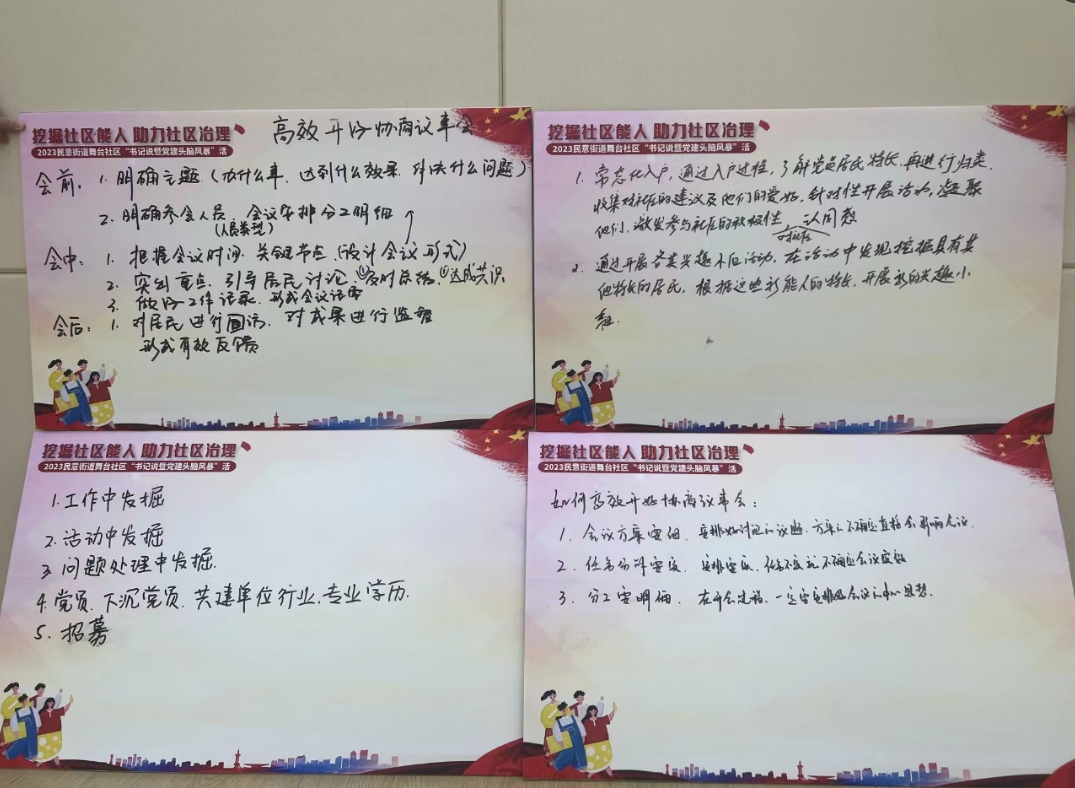 挖掘社区能人 助力社区治理
2023民意街道舞台社区“书记说暨党建头脑风暴”活
高效开好协商议事会
会前：1. 明确主题（办什么事，达到什么效果，解决什么问题）
2. 明确参会人员，会议安排分工明细
（人层类型）
会中：1. 把握会议时间，关键节点（设计会议形式）
2. 突出重点，引导居民讨论，①及时总结，①达成共识
3. 做好工作记录，形成会议记录
会后：1. 对居民进行回访，对成果进行监督
形成有效反馈
挖掘社区能人 助力社区治理
2023民意街道舞台社区“书记说暨党建头脑风暴”活
1. 常态化入户，通过入户过程，了解党员居民特长，再进行归类
收集对社区的建议及他们的爱好，针对性开展活动，凝聚
他们，激发参与社区的积极性、认同感
对社区
2. 通过开展各类兴趣不同活动，在活动中发现挖掘具有其
他特长的居民，根据这些新能人的特长，开展新的兴趣小
组.
挖掘社区能人 助力社区治理
2023民意街道舞台社区“书记说暨党建头脑风暴”活
1. 工作中发掘
2. 活动中发掘
3. 问题处理中发掘.
4. 党员、下沉党员、共建单位行业、专业学历.
5. 招募
挖掘社区能人 助力社区治理
2023民意街道舞台社区“书记说暨党建头脑风暴”活
如何高效开好协商议事会：
1. 会议方案要细，安排好讨论议题，方案不确定直接会影响会议.
2. 任务分配要，安排要，任务不不确定会议
3. 分工要明细，在开会过程，一定要会议思想.